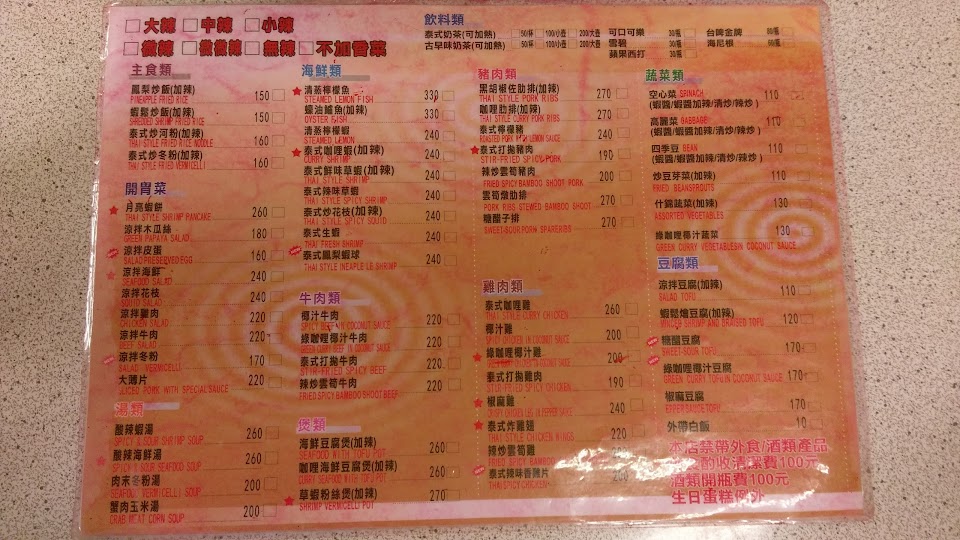 □大辣 □中辣 □小辣
□微辣 □微微辣 □無辣 □不加香菜
飲料類
泰式奶茶(可加熱) 50/杯 100/小壺 200/大壺
古早味奶茶(可加熱) 50/杯 100/小壺 200/大壺
可口可樂 30/瓶
雪碧 30/瓶
蘋果西打 30/瓶
台啤金牌 80/瓶
海尼根 80/瓶
主食類
鳳梨炒飯(加辣) 150
PINEPPLE FRIED RICE
蝦鬆炒飯(加辣) 150
SHREDED SHRIMP FRIED RICE
泰式炒河粉(加辣) 160
THAI STYLE FRIED RICE NOODLE
泰式炒冬粉(加辣) 160
THAI STYLE FRIED VERMICELLI
開胃菜
月亮蝦餅 260
THAI STYLE SHRIMP PANCAKE
涼拌木瓜絲 180
GREEN PAPAYA SALAD
涼拌皮蛋 160
SALAD PRESERVED EGG
涼拌海鮮 240
SEAFOOD SALAD
涼拌花枝 240
SQUID SALAD
涼拌雞肉 220
CHICKEN SALAD
涼拌牛肉 220
BEEF SALAD
涼拌冬粉 170
SALAD VERMICELLI
大薄片 220
SLICED PORK WITH SPECIAL SAUCE
湯類
酸辣蝦湯 260
SPICY & SOUR SHRIMP SOUP
酸辣海鮮湯 260
SPICY & SOUR SEAFOOD SOUP
肉末冬粉湯 200
SEAFOOD VERMICELLI SOUP
蟹肉玉米湯 200
CRAB MEAT CORN SOUP
海鮮類
清蒸檸檬魚 330
STEAMED LEMON FISH
蠔油鱸魚(加辣) 330
OYSTER FISH
清蒸檸檬蝦 240
STEAMED LEMON
泰式咖哩蝦(加辣) 240
CURRY SHRIMP
泰式鮮味草蝦(加辣) 240
THAI STYLE SHRIMP
泰式辣味草蝦 240
THAI STYLE SPICY SHRIMP
泰式炒花枝(加辣) 240
THAI STYLE SPICY SQUID
泰式生蝦 240
THAI FRESH SHRIMP
泰式鳳梨蝦球 240
THAI STYLE INEAPLE LE SHRIMP
牛肉類
椰汁牛肉 220
SPICY BEEF IN COCONUT SAUCE
綠咖哩椰汁牛肉 220
GREEN CURRY BEEF IN COCONUT SAUCE
泰式打拋牛肉 220
STIR-FRIED SPICY BEEF
辣炒雲筍牛肉 220
FRIED SPICY BAMBOO SHOOT BEEF
煲類
海鮮豆腐煲(加辣) 260
SEAFOOD WITH TOFU POT
咖哩海鮮豆腐煲(加辣) 260
CURRY SEAFOOD WITH TOFU POT
草蝦粉絲煲(加辣) 270
SHRIMP VERMICELLI POT
豬肉類
黑胡椒佐肋排(加辣) 270
THAI STYLE PORK RIBS
咖哩肋排(加辣) 270
THAI STYLE CURRY PORK RIBS
泰式檸檬豬 240
ROASTED PORK IN LEMON SAUCE
泰式打拋豬肉 190
STIR-FRIED SPICY PORK
辣炒雲筍豬肉 200
FRIED SPICY BAMBOO SHOOT PORK
雲筍燉肋排 270
PORK RIBS STEWED BAMBOO SHOOT
糖醋子排 270
SWEET&SOUR PORK SPARERIBS
雞肉類
泰式咖哩雞 260
THAI STYLE CURRY CHICKEN
椰汁雞 200
SPICY CHICKEN IN COCONUT SAUCE
綠咖哩椰汁雞 200
泰式打拋雞肉 190
STIR-FRIED SPICY CHICKEN
椒麻雞 240
CRISPY CHICKEN LEG IN PEPPER SAUCE
泰式炸雞翅 220
THAI STYLE CHICKEN WINGS
辣炒雲筍雞
FRIED SPICY BAMBOO
泰式辣味香雞片
THAI SPICY CHICKEN
蔬菜類
空心菜 SPINACH 110
(蝦醬/蝦醬加辣/清炒/辣炒)
高麗菜 GABBAGE 110
(蝦醬/蝦醬加辣/清炒/辣炒)
四季豆 BEAN 110
(蝦醬/蝦醬加辣/清炒/辣炒)
炒豆芽菜(加辣) 110
FRIED BEANSPROUTS
什錦蔬菜(加辣) 130
ASSORTED VEGETABLES
綠咖哩椰汁蔬菜 130
GREEN CURRY VEGETABLESIN COCONUT SAUCE
豆腐類
涼拌豆腐(加辣) 110
SALAD TOFU
蝦鬆燴豆腐(加辣) 120
MINCED SHRIMP AND BRAISED TOFU
糖醋豆腐 170
SWEET-SOUR TOFU
綠咖哩椰汁豆腐 170
GREEN CURRY TOFU IN COCONUT SAUCE
椒麻豆腐 170
PEPPER SAUCE TOFU
外帶白飯 10
本店禁帶外食/酒類產品
酌收清潔費100元
酒類開瓶費100元
生日蛋糕例外